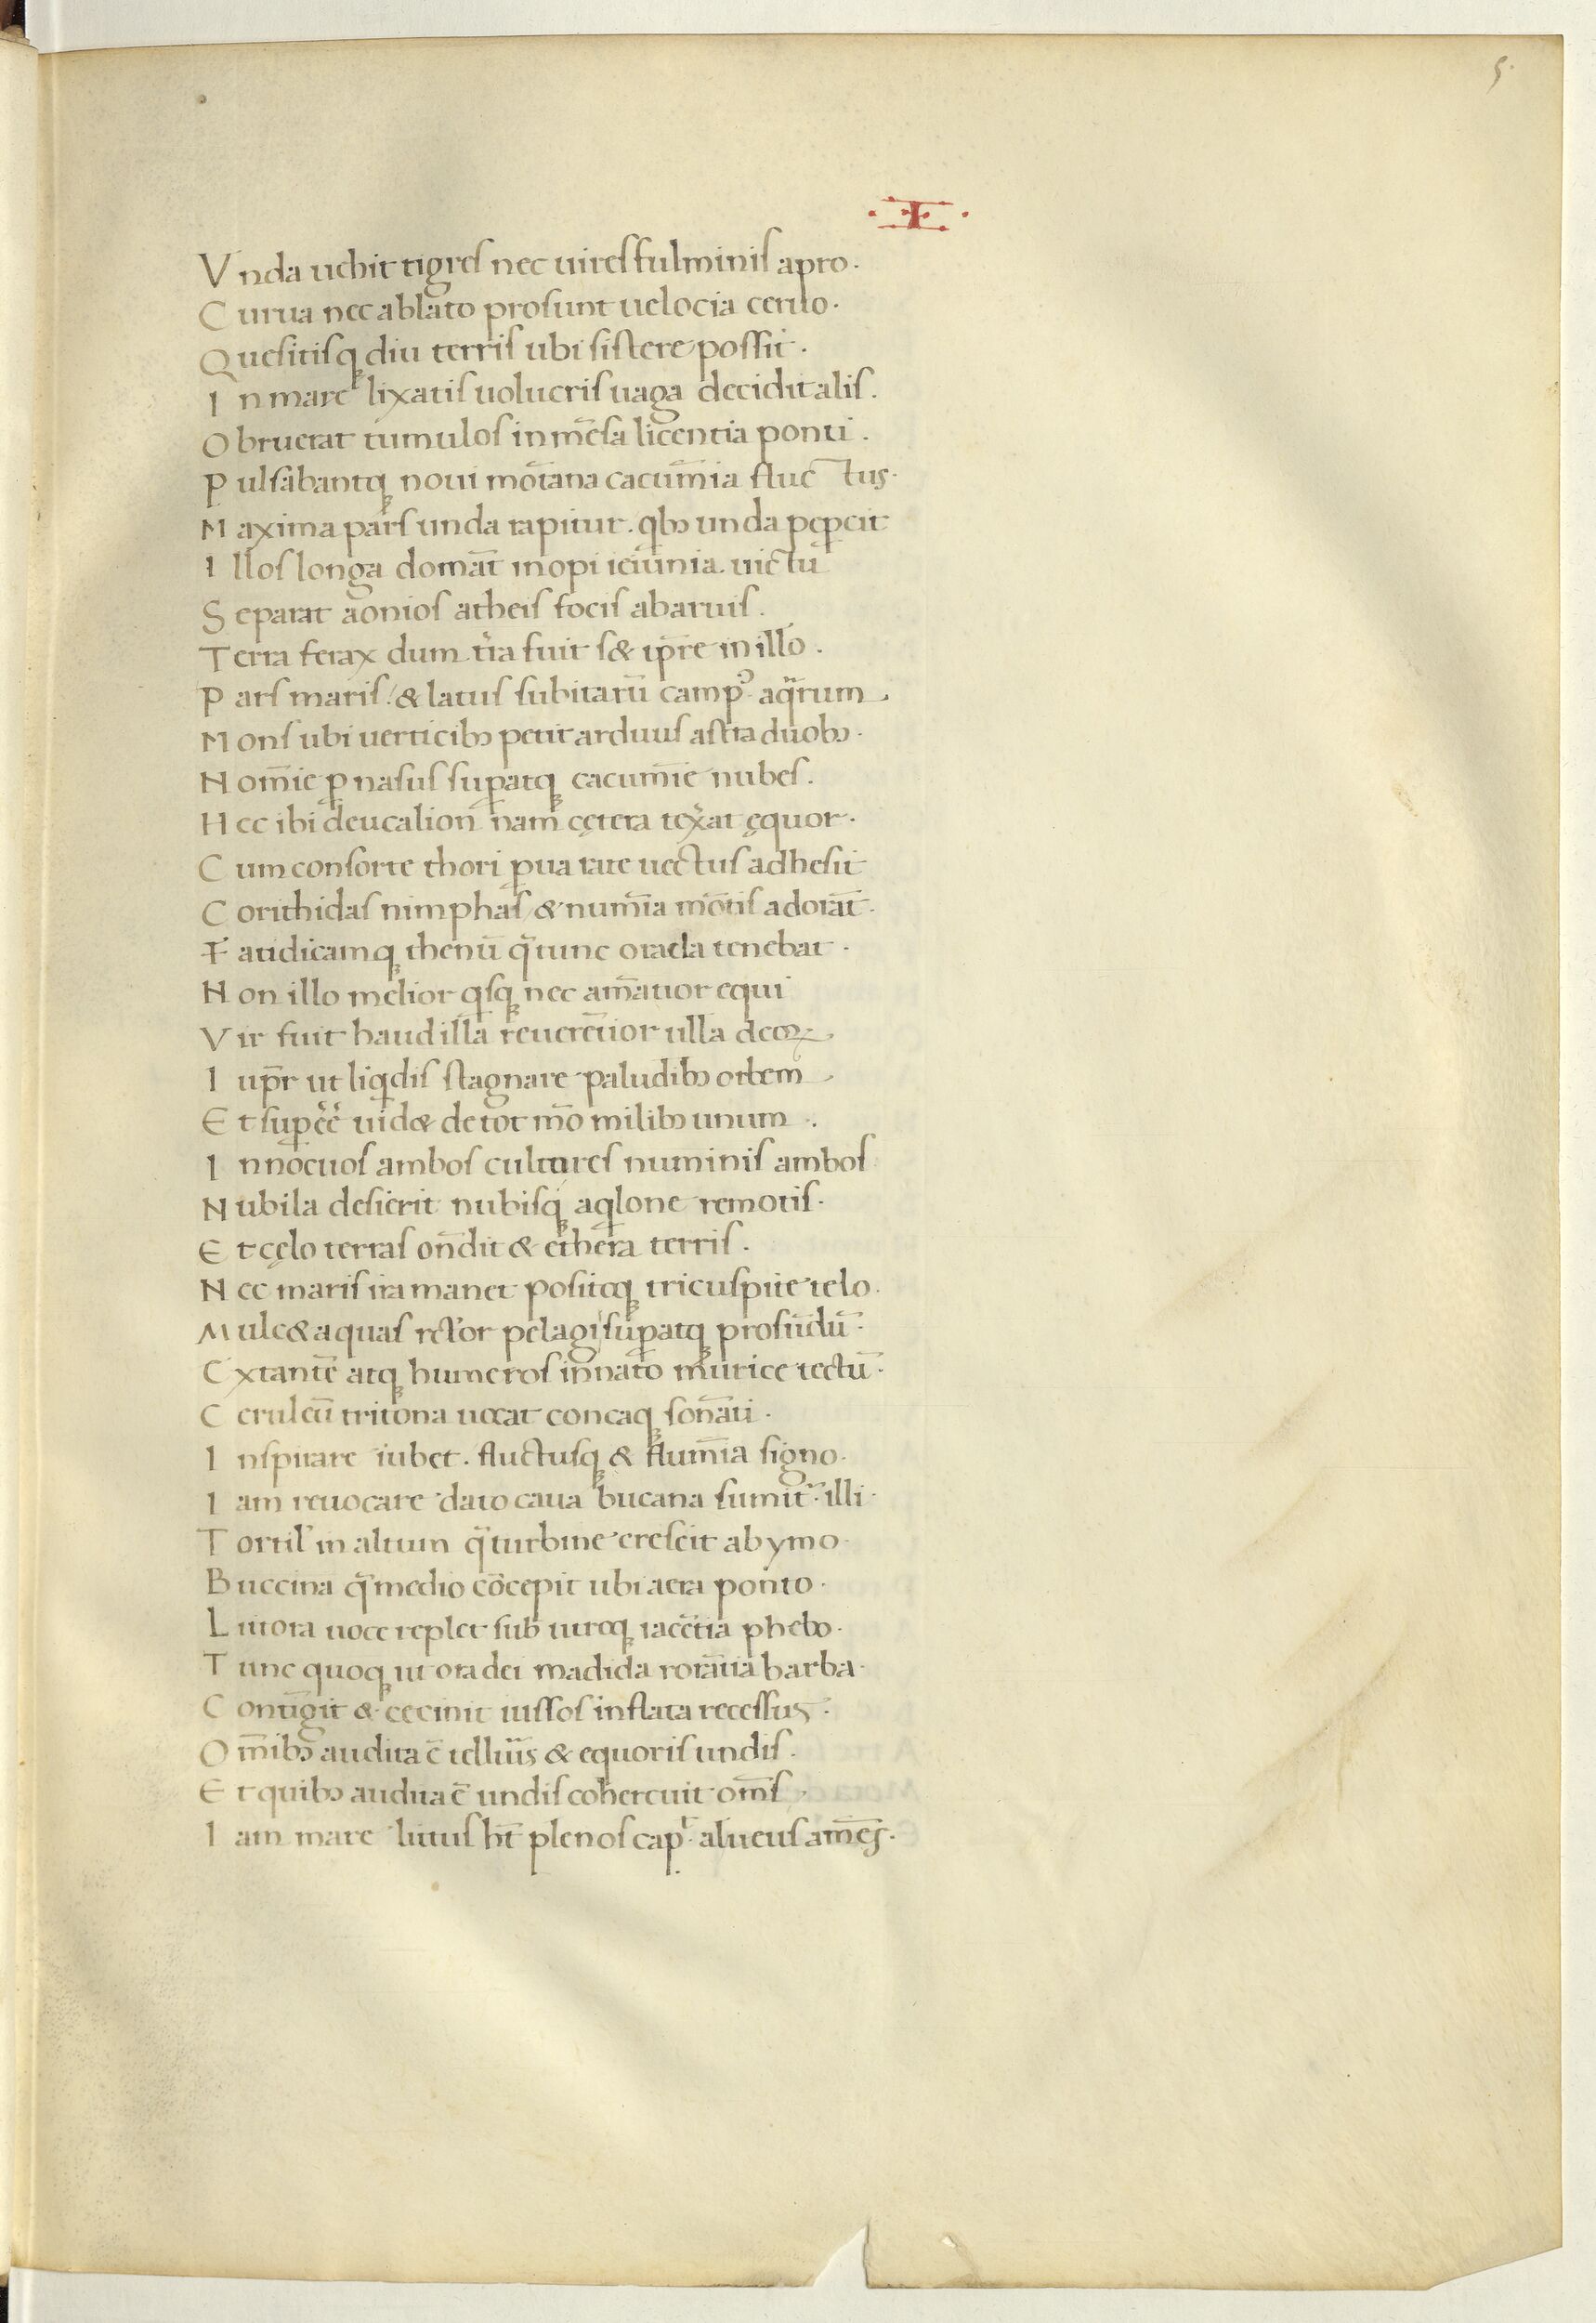 5.
·I·
Vnda uehit tigres nec uires fulminis apro.
Curua nec ablato prosunt uelocia ceruo.
Quesitisqꝫ diu terris ubi sistere possit.
In mare lixatis uolucris uaga decidit alis.
Obruerat tumulos inmēsa licentia ponti.
Pulsabantqꝫ noui mōtana cacumīa fluctus.
Maxima pars unda rapitur. qꝰbꝫ unda peꝑcit
Illos longa domāt inopi ieiunia uictu
Separat aonios atheis focis ab aruis.
Terra ferax dum tr̄a fuit s& ip̄re in illo.
Pars maris. & latus subitarū campꝰ aqᵃrum
Mons ubi uerticibꝫ petit arduus astra duobꝫ.
Nomīe ꝑnasus suꝑatqꝫ cacumīe nubes.
Hec ibi deucalion nam cętera texᵃat ęquor.
Cum consorte thori ꝑua rate uectus adhesit
Corithidas nimphas & numīa mōtis adorāt.
Fatidicamqꝫ thenū qᵃ tunc oracla tenebat.
Non illo melior qⁱsqꝫ nec amātior equi
Vir fuit haud illa reuerētior ulla deoꝝ
Iup̄r ut liqⁱdis stagnare paludibꝫ orbem
Et suꝑēē uid& de tot mō milibꝫ unum.
Innocuos ambos cultores numinis ambos
Nubila desierit nubisqꝫ aqⁱlone remotis.
Et cęlo terras ondīt & ethera terris.
Nec maris ira manet positoqꝫ tricuspite telo.
Mulc& aquas rector pelagi suꝑatqꝫ profūdū.
Extantē atqꝫ humeros innato murice tectū.
Ceruleū tritona uocat concaqꝫ sonāti.
Inspirare iubet. fluctusqꝫ & flumīa signo.
Iam reuocare dato caua bucana sumit᷑ illi.
Tortilʼ in altum qᵃ turbine crescit ab ymo.
Buccina qᵃ medio cōcepit ubi aera ponto.
Litora uoce replet sub utroqꝫ iacētia phebo.
Tunc quoqꝫ ut ora dei madida rorātia barba.
Contīgit & cecinit iussos inflata recessus.
Omībꝫ audita ē telluīs & equoris undis.
Et quibꝫ audita ē undis cohercuit om̄s.
Iam mare litus ht̄ plenos cap᷑. alueus amēs.